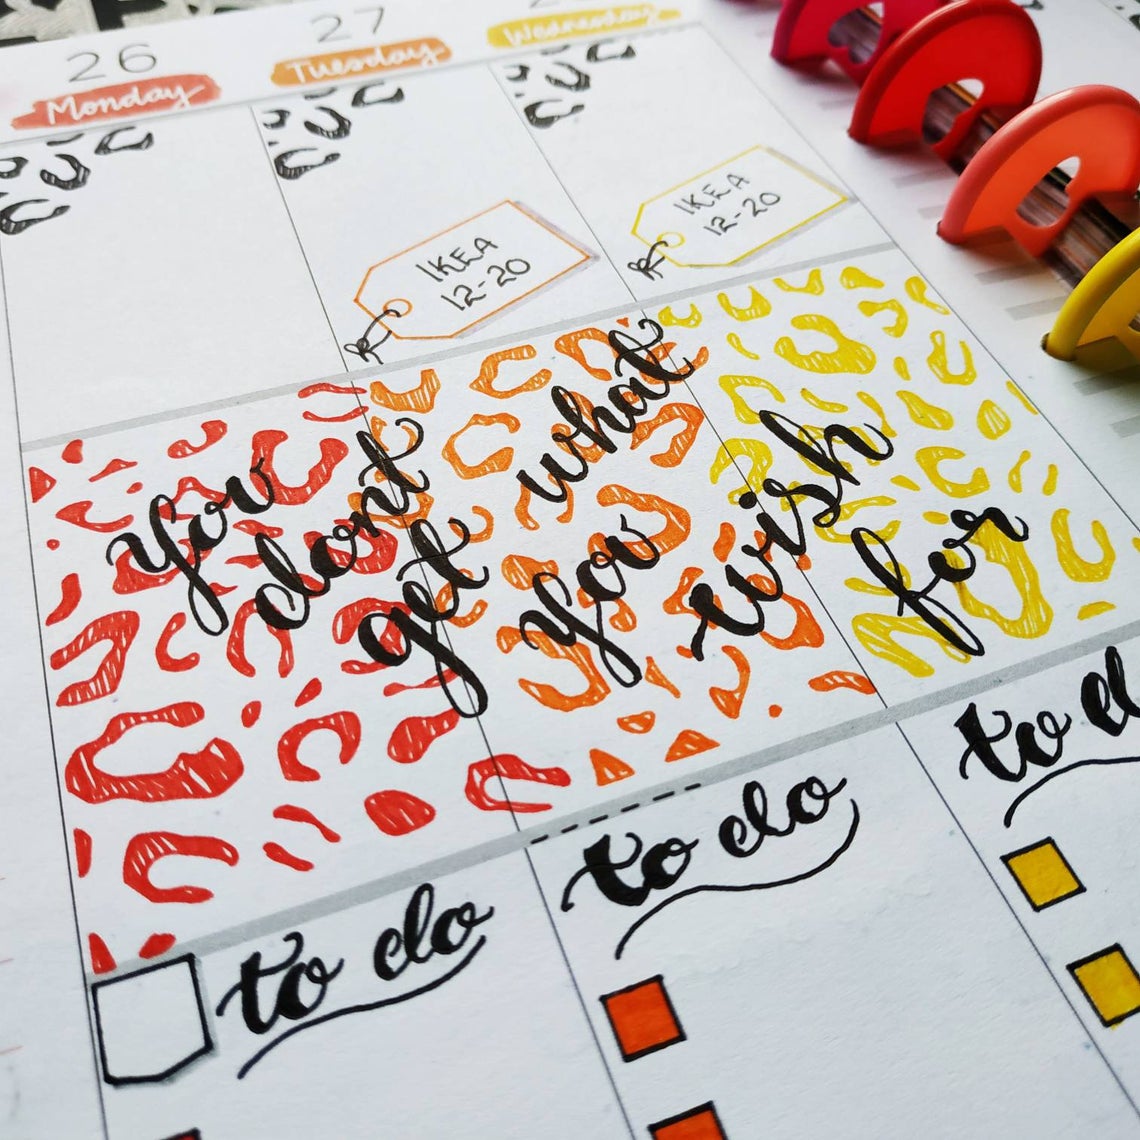 26
27
Monday
Tuesday
Wednesday
IKEA
12-20
IKEA
12-20
you
dont
get
what
you
wish
for
to do
to do
to d